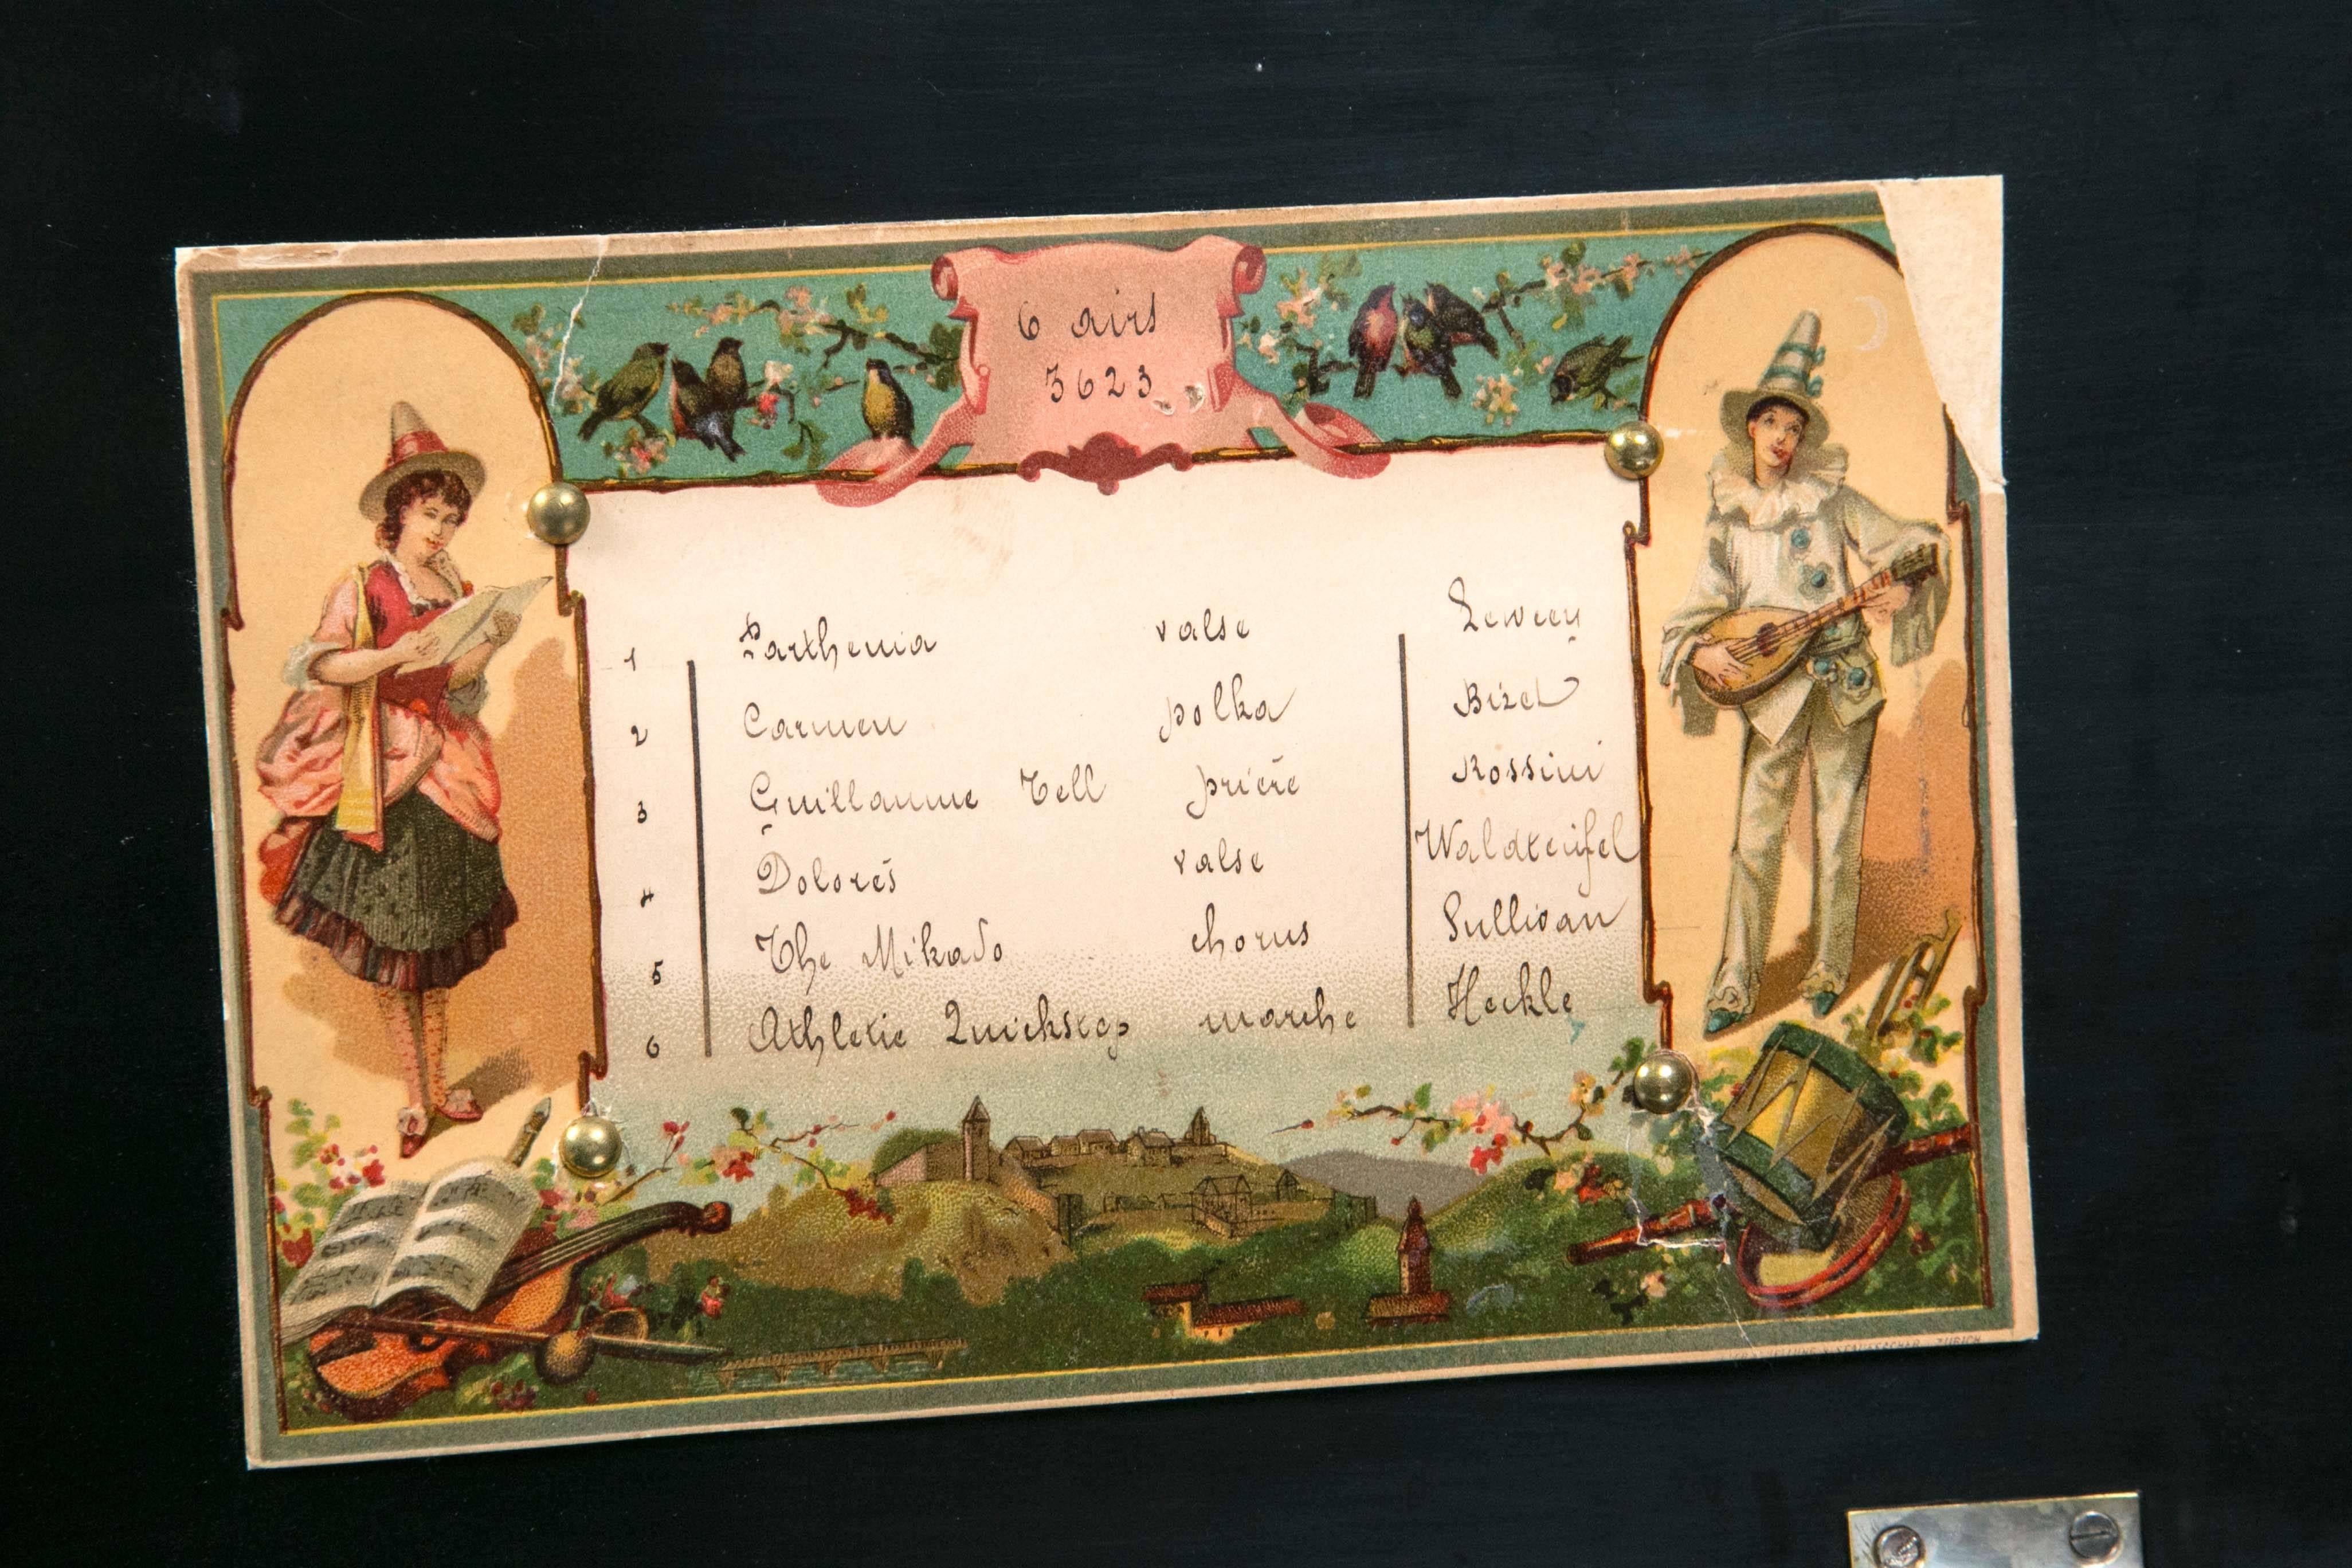 6 airs
3623
1 Parthenia valse
2 Carmen polka Bizet
3 Guillaume Tell prière Rossini
4 Dolorès valse Waldteufel
5 The Mikado chorus Sullivan
6 Athletic Quickstep marche Heckle
ZÜRICH